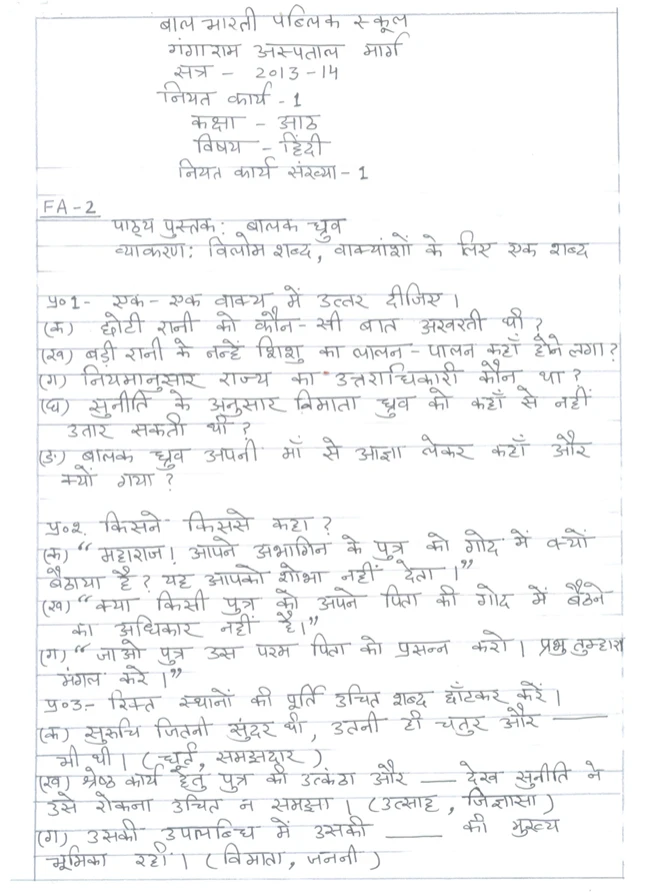 बाल भारती पब्लिक स्कूल
गंगा राम अस्पताल मार्ग
सत्र - 2013-14
नियत कार्य - 1
कक्षा - आठ
विषय - हिंदी
नियत कार्य संख्या - 1
FA-2
पाठ्य पुस्तक: बालक ध्रुव
व्याकरण: विलोम शब्द, वाक्यांशों के लिए एक शब्द
प्र०1- एक-एक वाक्य में उत्तर दीजिए।
(क) छोटी रानी को कौन-सी बात अखरती थी?
(ख) बड़ी रानी के नन्हें शिशु का लालन-पालन कहाँ होने लगा?
(ग) नियमानुसार राज्य का उत्तराधिकारी कौन था?
(घ) सुनीति के अनुसार विमाता ध्रुव को कहाँ से नहीं
उतार सकती थी?
(ङ) बालक ध्रुव अपनी माँ से आज्ञा लेकर कहाँ और
क्यों गया?
प्र०2. किसने किससे कहा?
(क) "महाराज! आपने अभागिन के पुत्र को गोद में क्यों
बैठाया है? यह आपको शोभा नहीं देता।"
(ख) "क्या किसी पुत्र को अपने पिता की गोद में बैठने
का अधिकार नहीं है।"
(ग) "जाओ पुत्र उस परम पिता को प्रसन्न करो। प्रभु तुम्हारा
मंगल करे।"
प्र०3:- रिक्त स्थानों की पूर्ति उचित शब्द छाँटकर करें।
(क) सुरुचि जितनी सुंदर थी, उतनी ही चतुर और ____
भी थी। (धूर्त, समझदार)
(ख) श्रेष्ठ कार्य हेतु पुत्र की उत्कंठा और ____ देख सुनीति ने
उसे रोकना उचित न समझा। (उत्साह, जिज्ञासा)
(ग) उसकी उपलब्धि में उसकी ____ की मुख्य
भूमिका रही। (विमाता, जननी)